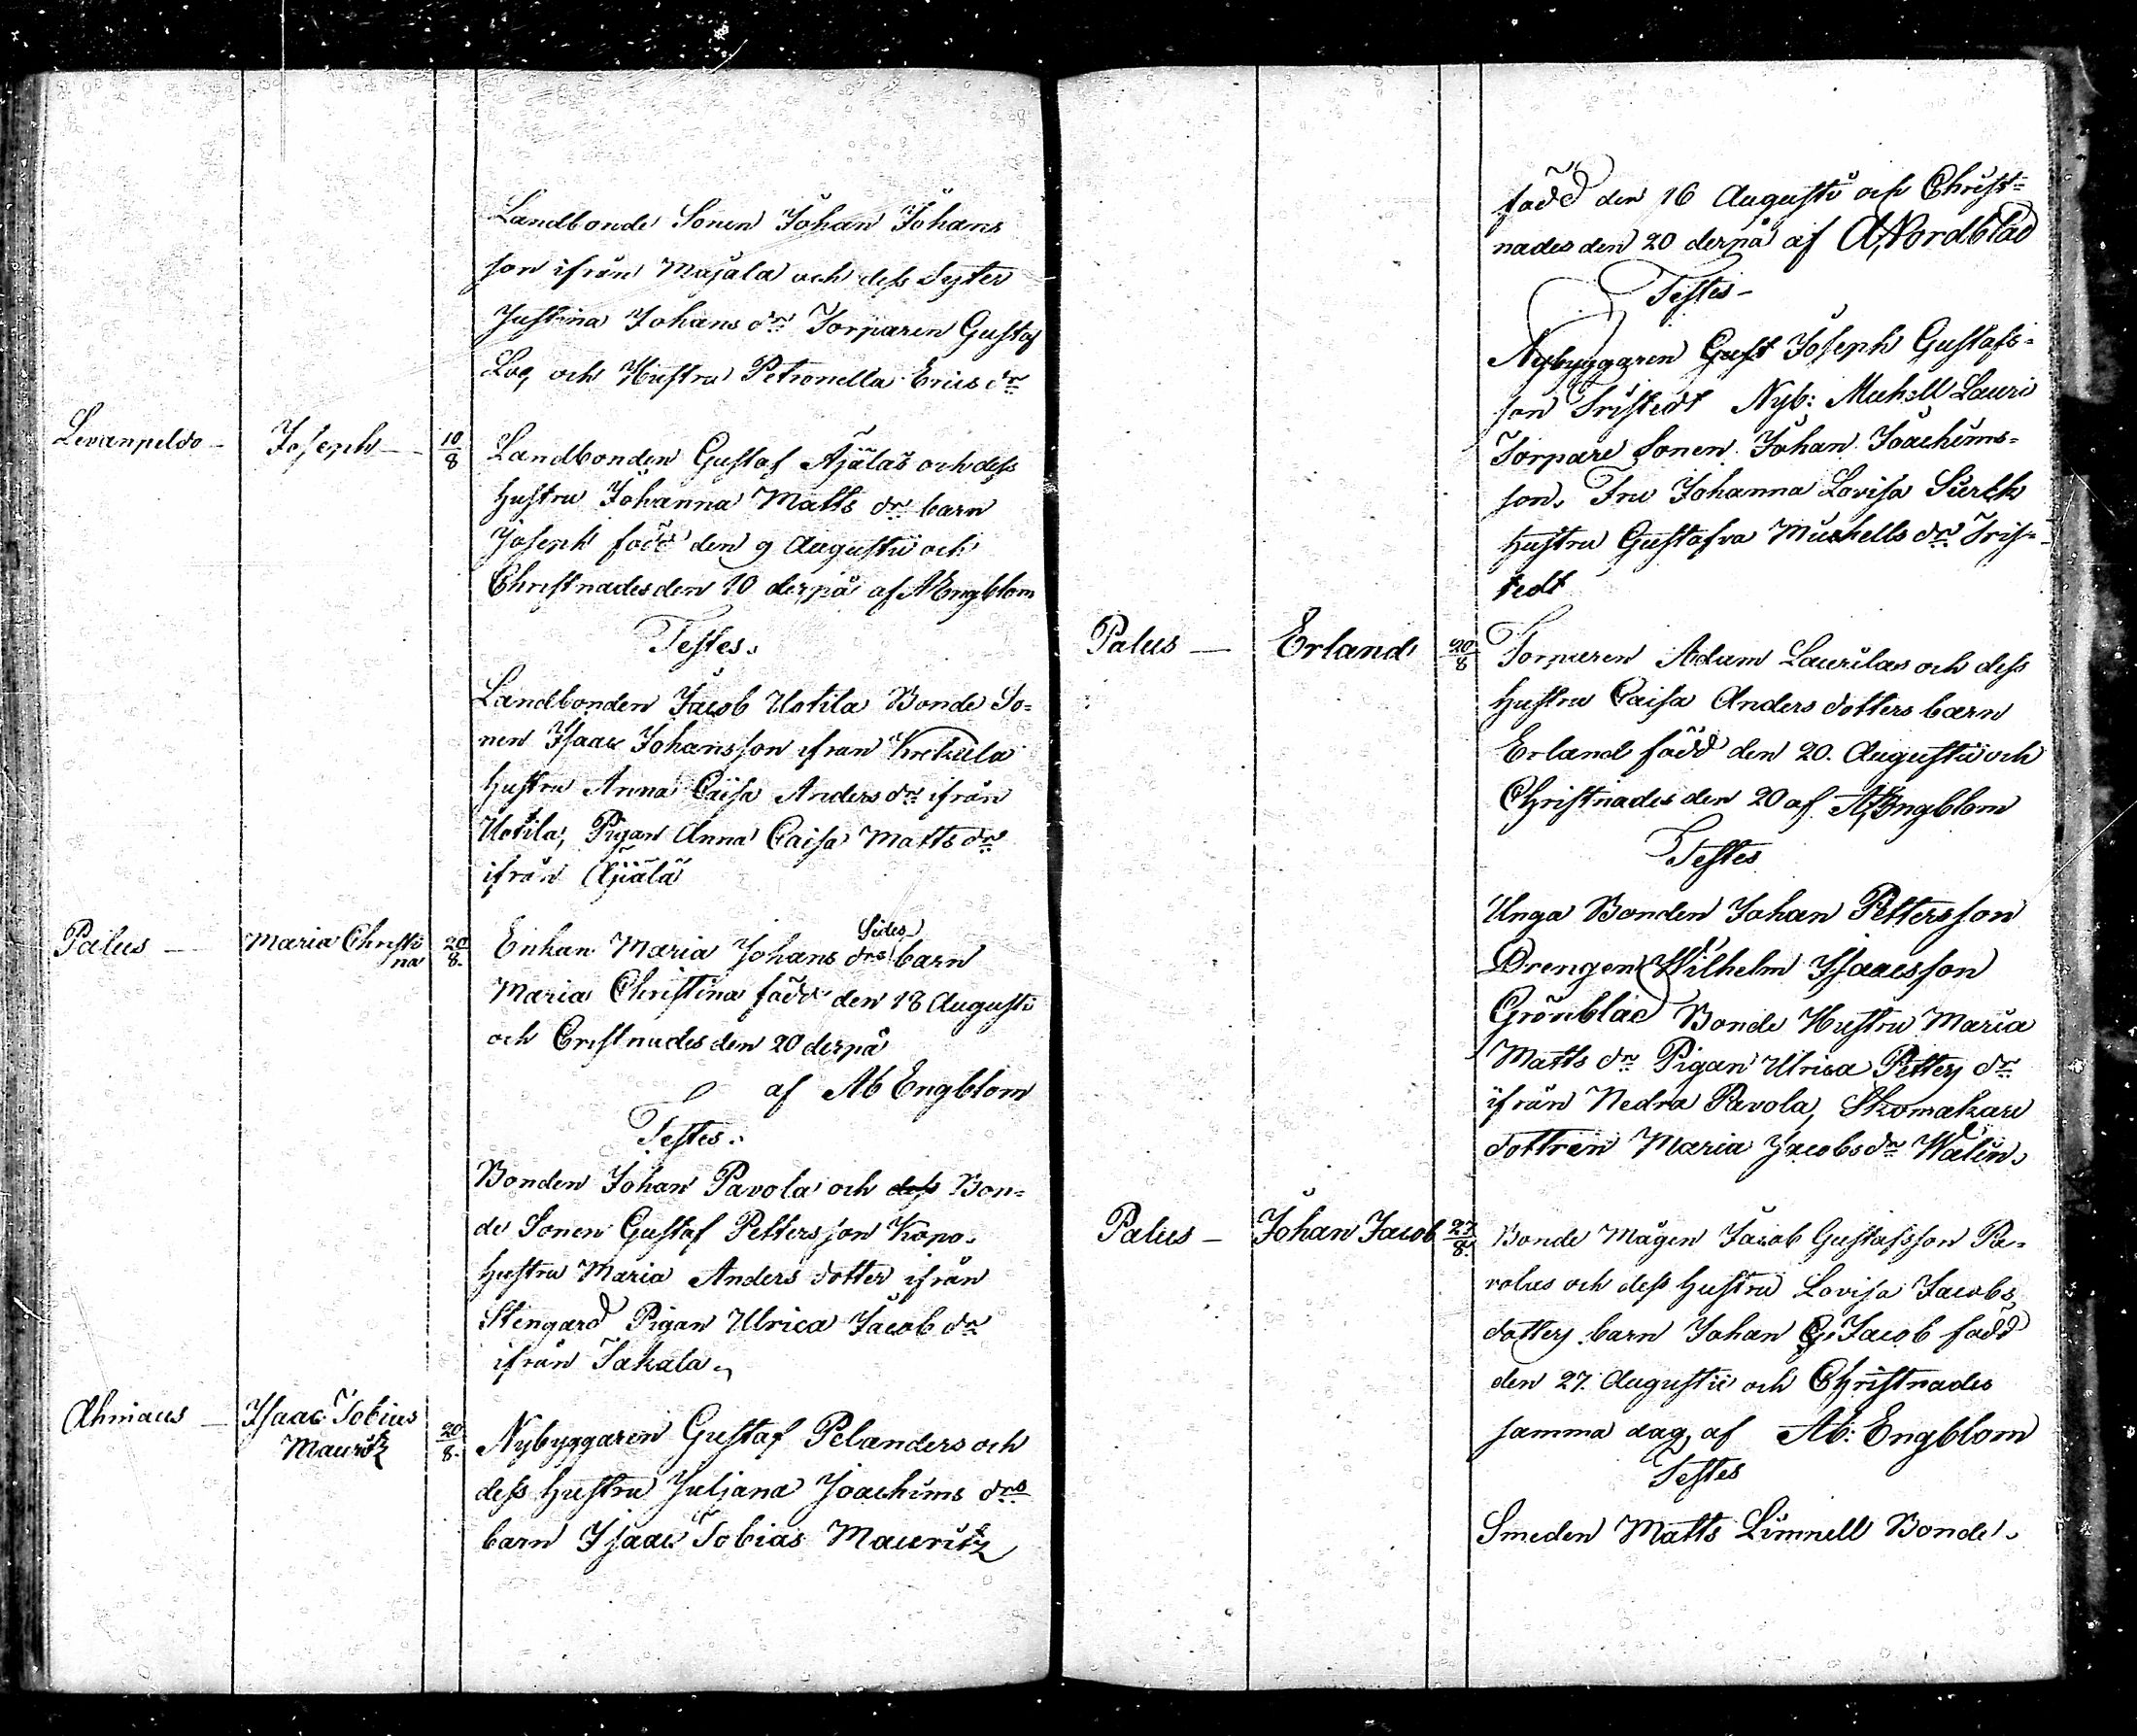 Landbonde Sonen Johan Johans
son ifrån Majala och dess Syster
Justina Johans dr Torparen Gustaf
och Hustru Petronella Erics dr
Levanpeldo - Joseph - 10/8 Landbonden Gustaf Äjäläs och dess
hustru Johanna Matts drs barn
Joseph född den 9 Augustii och
Christnades den 10 derpå af A Engblom
Testes.
Landbonden Jacob Uotila Bonde So=
nen Isaac Johansson ifrån Krekula
hustru Anna Caisa Anders dr ifrån
Uotila, Pigan Anna Caisa Matts dr
ifrån Äjälä
Palus - Maria Christi
na 20/8. Enkan Maria Johans drs Sides barn
Maria Christina född den 18 Augusti
och Cristnades den 20 derpå
af Ab Engblom
Testes.
Bonden Johan Pavola och dess Bon=
de Sonen Gustaf Pettersson Kopo.
hustru Maria Anders dotter ifrån
Stengard Pigan Ulrica Jacob dr
ifrån Takala.
Ahmaus - Isaac Tobias
Mauritz 20/8. Nybyggaren Gustaf Pelanders och
dess hustru Juljana Joachims drs
barn Isaac Tobias Mauritz
född den 16 Augusti och Christ=
nades den 20 derpå af A, Nordblad
Testis -
Nybyggaren Gust Joseph Gustafs=
son Fristedt Nyb: Michell Lauri
Torpare Sonen Johan Joachims=
son. Fru Johanna Lovisa
hustru Gustafva Michells dr Fris=
tedt
Palus - Erland 20/8 Torparen Adam Laurilas och dess
hustru Caisa Anders dotters barn
Erland född den 20. Augustii och
Christnades den 20 af A, Engblom
Testes
Unga Bonden Johan Pettersson
Drengen Wilhelm Isaacsson
Grönblad Bonde Hustru Maria
Matts dr Pigan Ulrica Petters dr
ifrån Nedra Pavola, Skomakare
dottren Maria Jacobs dr Walin.
Palus - Johan Jacob 27/8. Bonde Mågen Jacob Gustafsson Pa=
volas och dess hustru Lovisa Jacobs
dotters barn Johan G Jacob född
den 27. Augustii och Christnades
samma dag, af Ab: Engblom
Testes
Smeden Matts Limnell Bonde